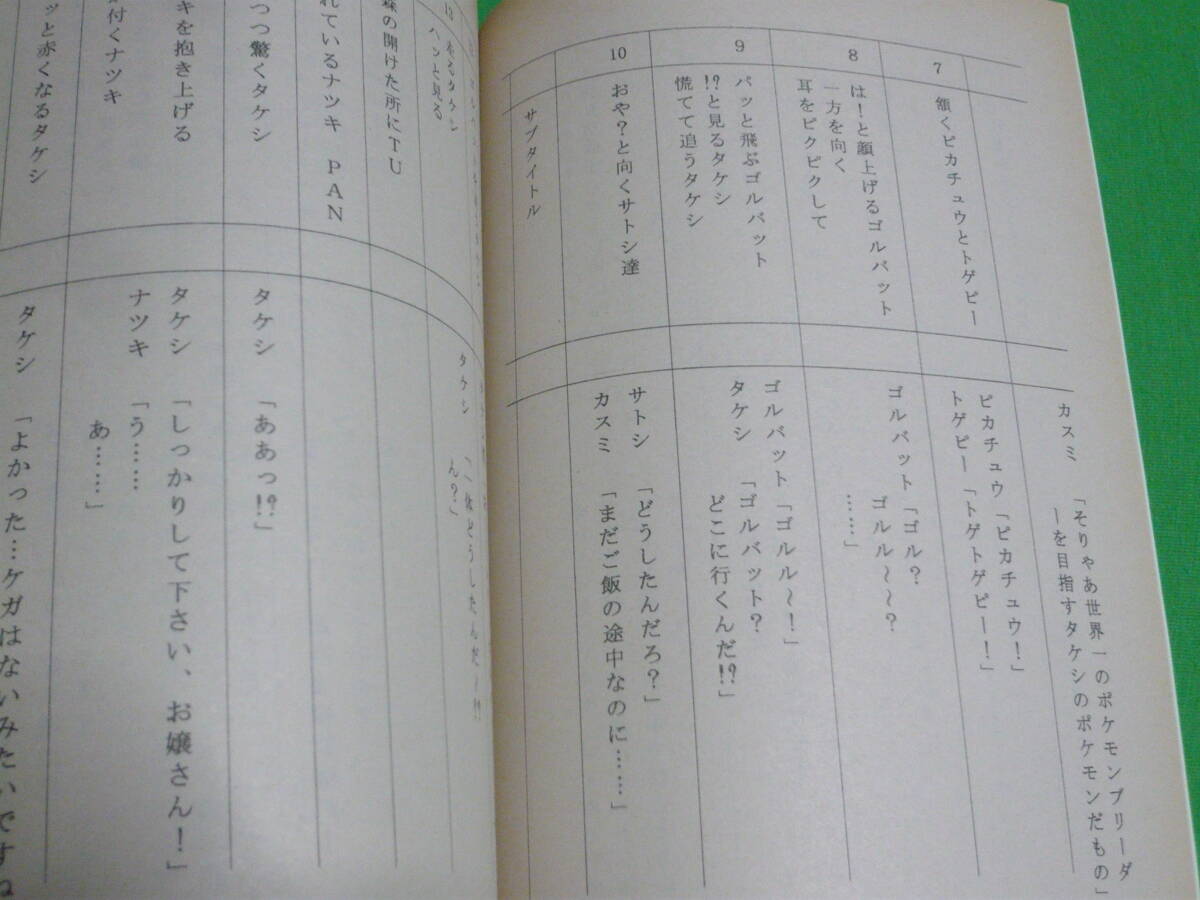 カスミ 「そりゃあ世界一のポケモンブリーダ
ーを目指すタケシのポケモンだもの」
7
頷くピカチュウとトゲピー
ピカチュウ「ピカチュウ！」
トゲピー「トゲトゲピー！」
8
は！と顔上げるゴルバット
一方を向く
耳をピクピクして
ゴルバット「ゴル？
ゴルル〜〜？
……」
9
パッと飛ぶゴルバット
!?と見るタケシ
慌てて追うタケシ
ゴルバット「ゴルル〜！」
タケシ 「ゴルバット？
どこに行くんだ!?」
10
おや？と向くサトシ達
サトシ 「どうしたんだろ？」
カスミ 「まだご飯の途中なのに……」
サブタイトル
タケシ 「一体どうしたんだ
ん？」
ハッと見る
森の開けた所にTU
れているナツキ PAN
つつ驚くタケシ
タケシ 「ああっ!?」
キを抱き上げる
付くナツキ
タケシ 「しっかりして下さい、お嬢さん！」
ナツキ 「う……
あ……」
ッと赤くなるタケシ
タケシ 「よかった…ケガはないみたいですね